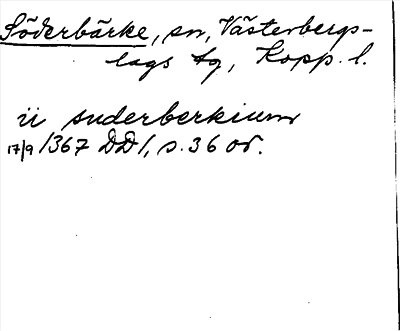 Söderbärke, sn, Västerbergs-
lags tg, Kopp. l.
ii suderberkium
17/9 1367 DD1, s. 36 or.